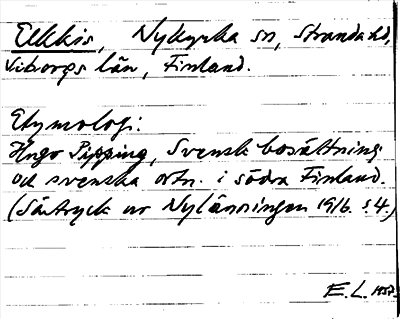 Elkkös, Nykyrka sn, Stranda hd,
Viborgs län, Finland.
Etymologi:
Hugo Pipping, Svensk bosättning
och svenska ortn. i södra Finland.
(Särtryck ur Nylänningen 1916. s. 4.)
E. L. 1957.